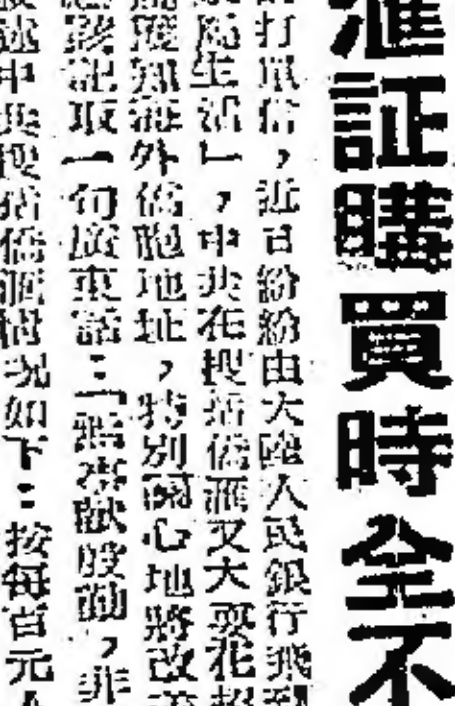 滙証購買時全不
打單信，近日紛紛由大陸人民銀行飛到
生活」，中共在搜括僑滙又大耍花招
獲知海外僑胞地址，特別關心地將改善
記取一句廣東話：「鷄?獻慇懃，非
述中共搜括僑滙情況如下：按每百元